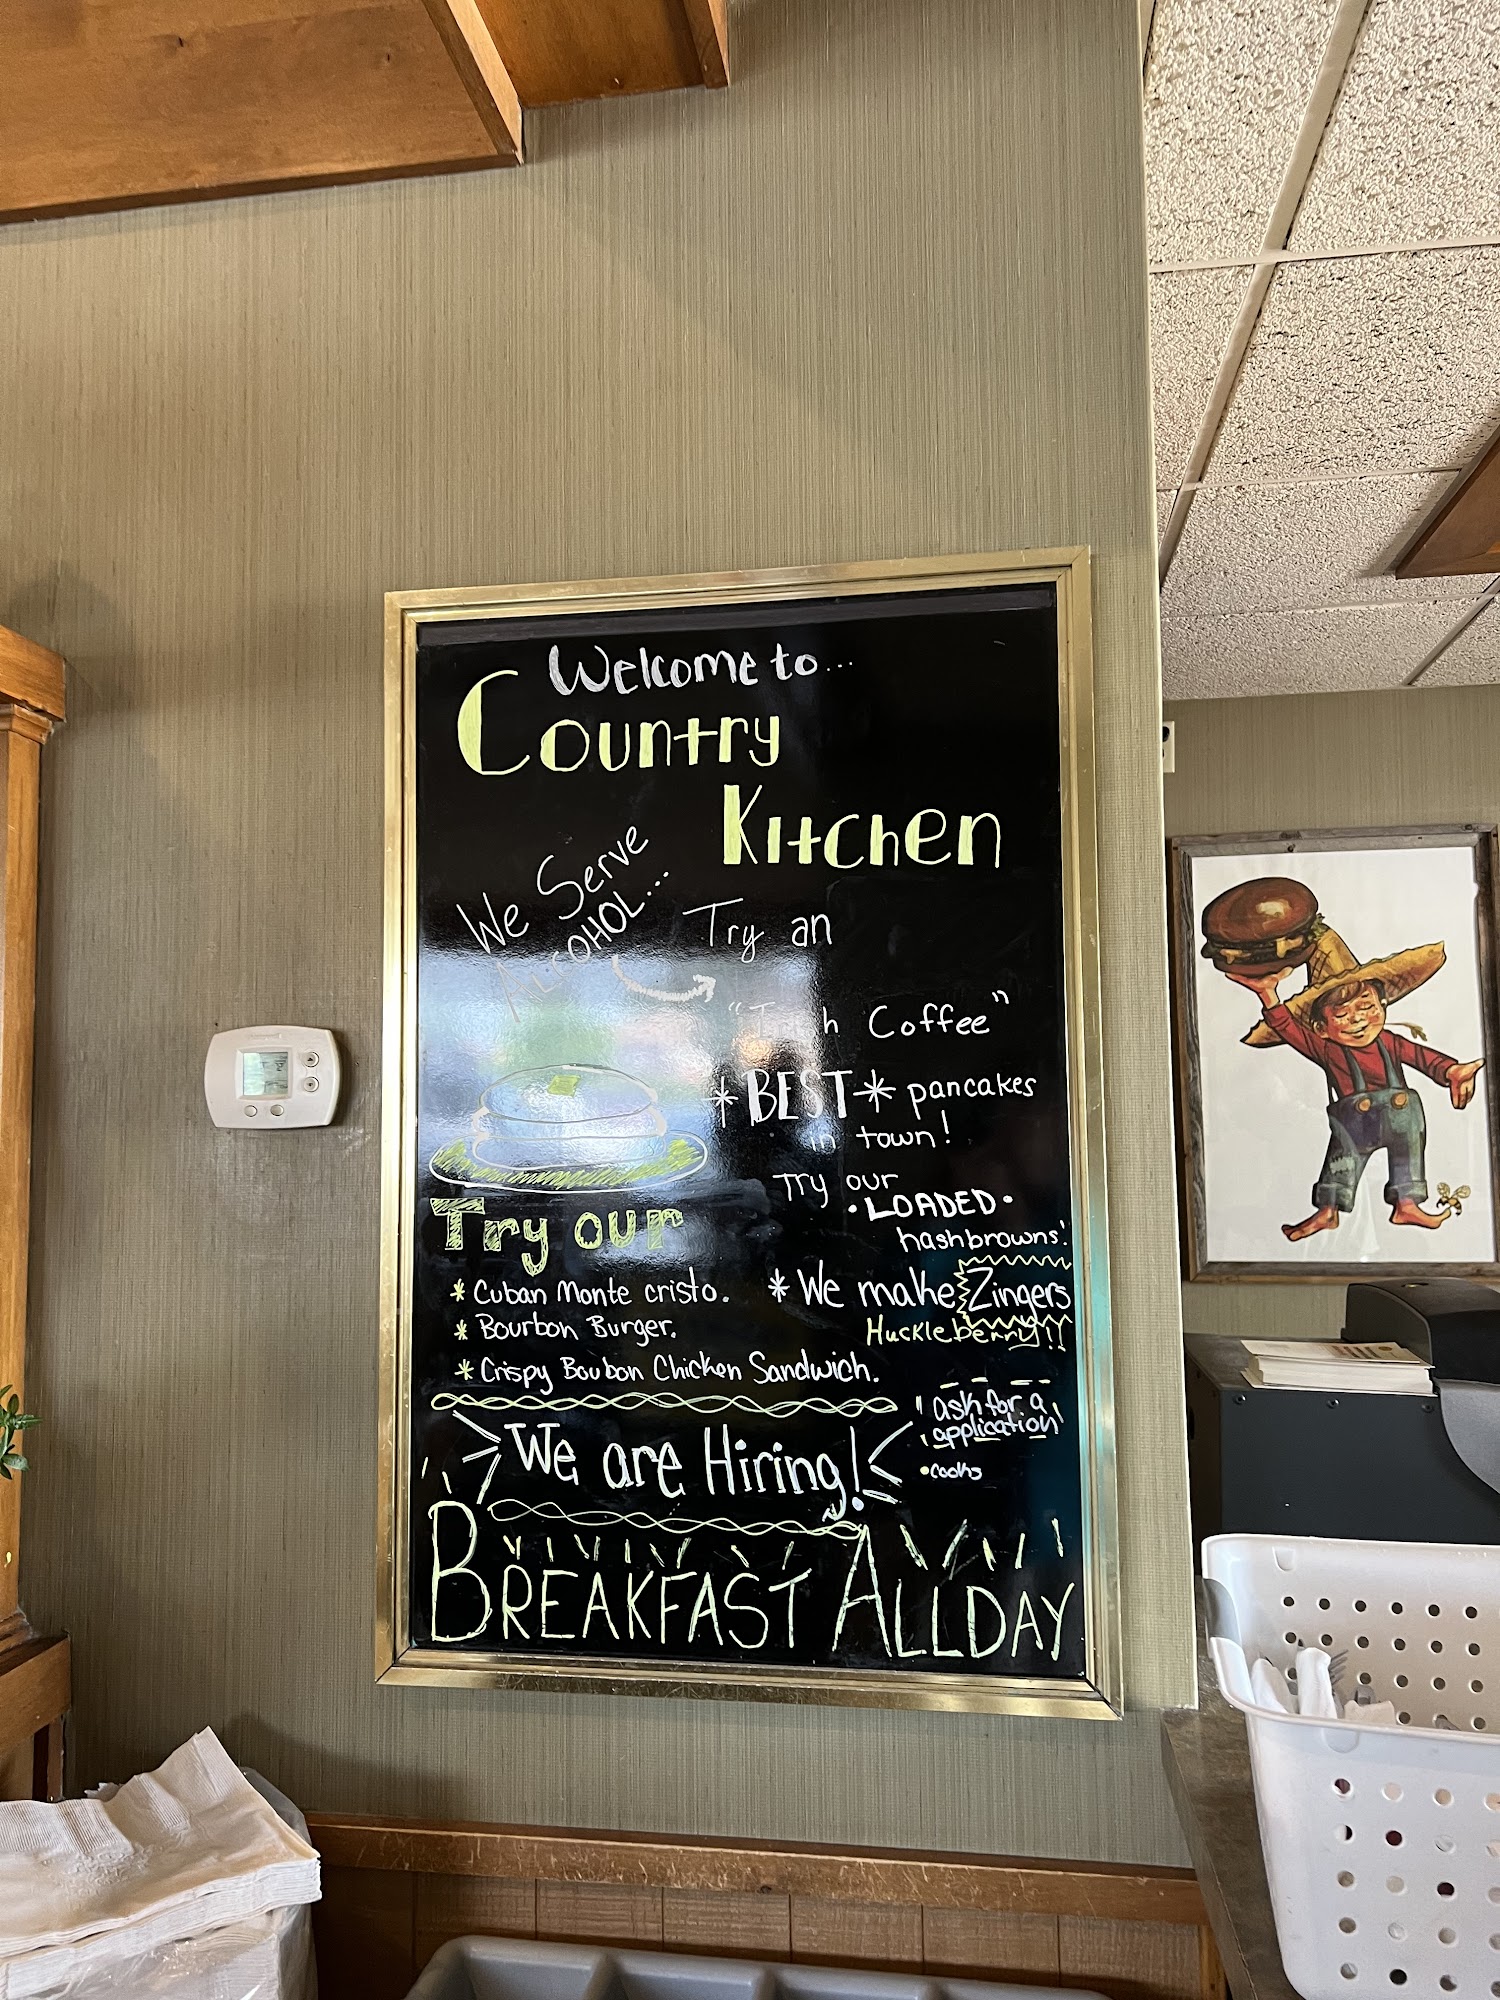 Welcome to...
Country
Kitchen
We Serve
ALCOHOL...
Try an
"Irish Coffee"
*BEST* pancakes
in town!
Try our
• LOADED •
hashbrowns!
Try our
* Cuban Monte cristo.
* Bourbon Burger.
* Crispy Boubon Chicken Sandwich.
* We make Zingers
Huckleberry!!
We are Hiring!
ask for a
application
• cooks
BREAKFAST ALLDAY